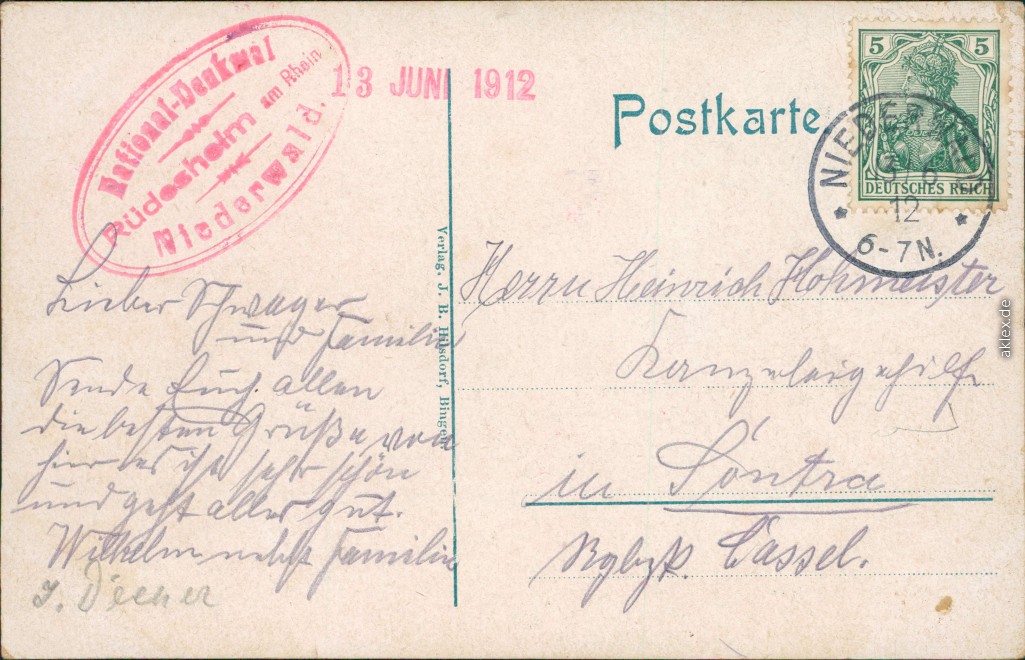 National-Denkmal
Rüdesheim am Rhein
Niederwald.
13 JUNI 1912
Postkarte
5 5
DEUTSCHES REICH
12
6-7N.
Lieber Schwager
und Familie
Sende Euch allen
die besten Grüße von
hier es ist sehr schön
und geht alles gut.
Wilhelm nebst Familie
Verlag. J. B. Hilsdorf, Bingen
Herrn Heinrich Hohmeister
Kanzleigehilfe
in Sontra
Rgbzk. Cassel.
aklex.de